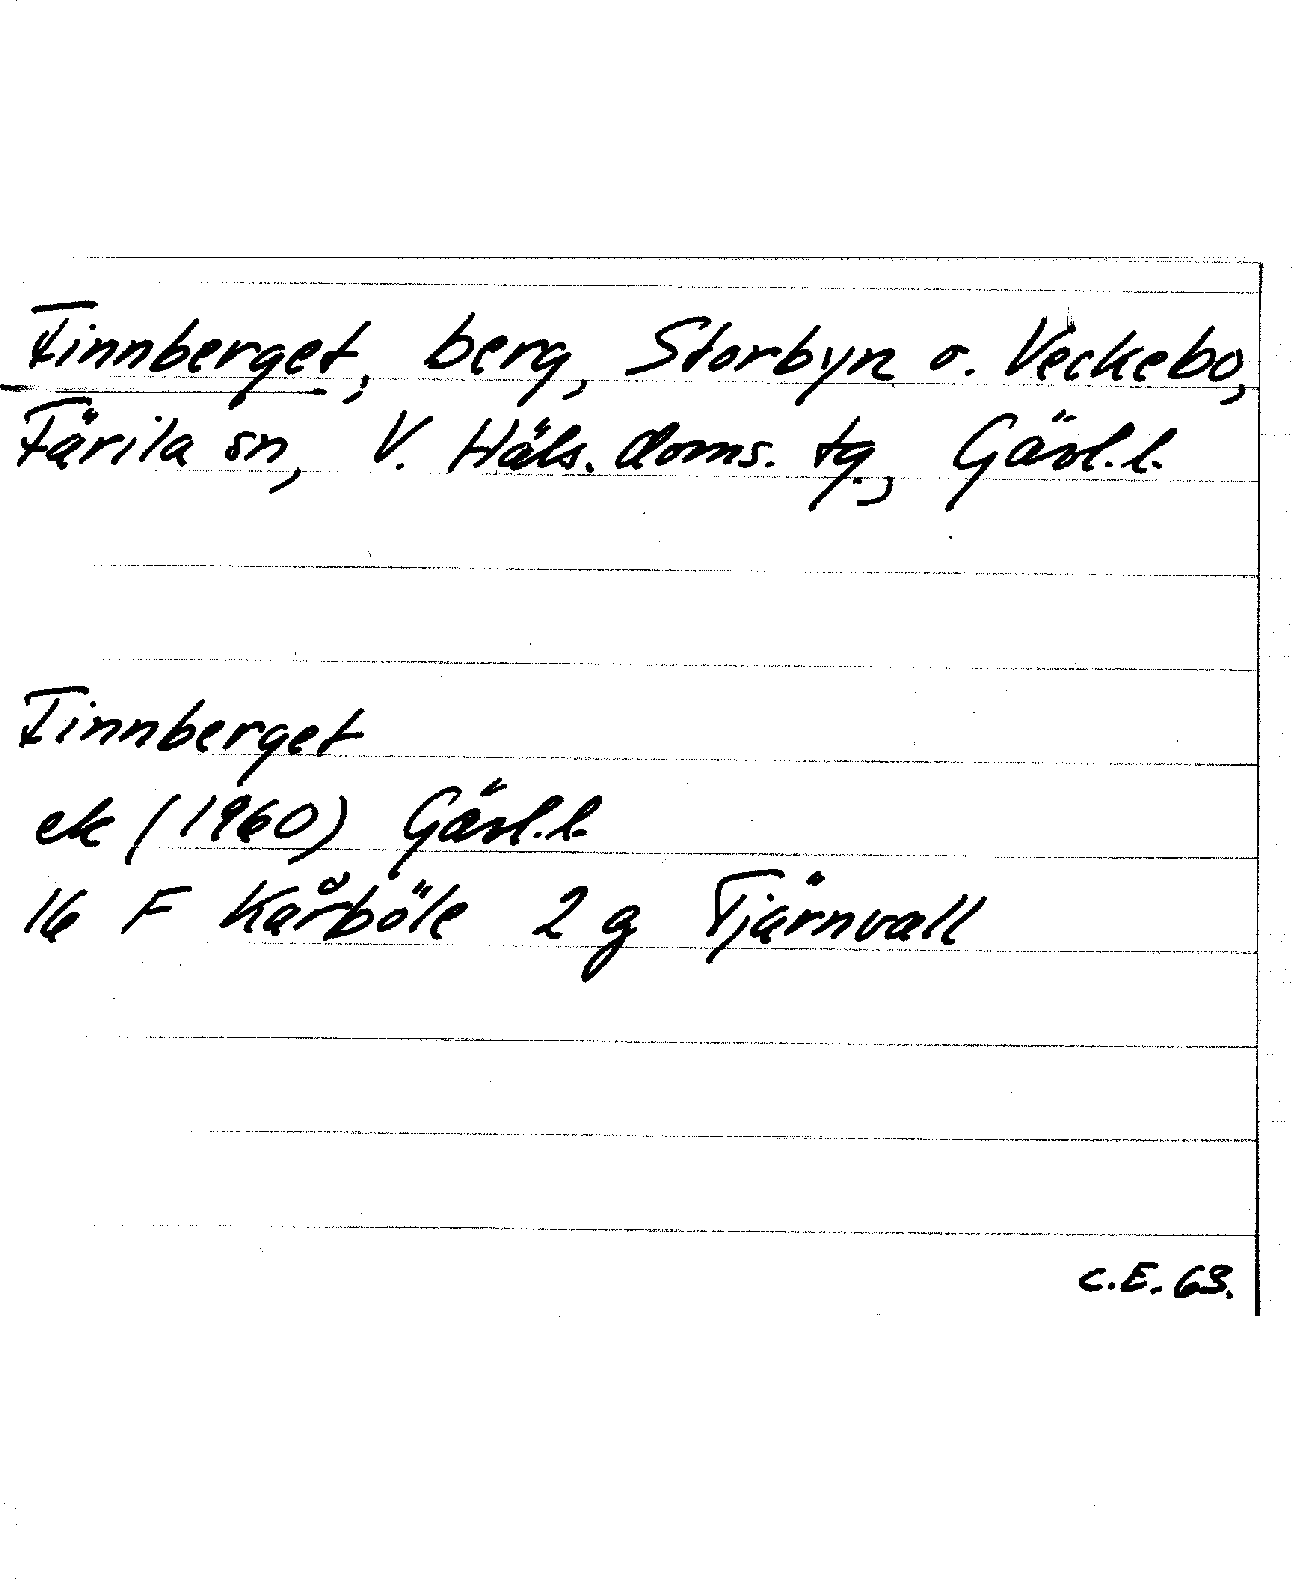 Finnberget, berg, Storbyn o. Veckebo,
Färila sn, V. Häls. doms. tg., Gävl.l.
Finnberget
ek (1960) Gävl.l.
16 F Kårböle 2 g Tjärnvall
C.E. 63.